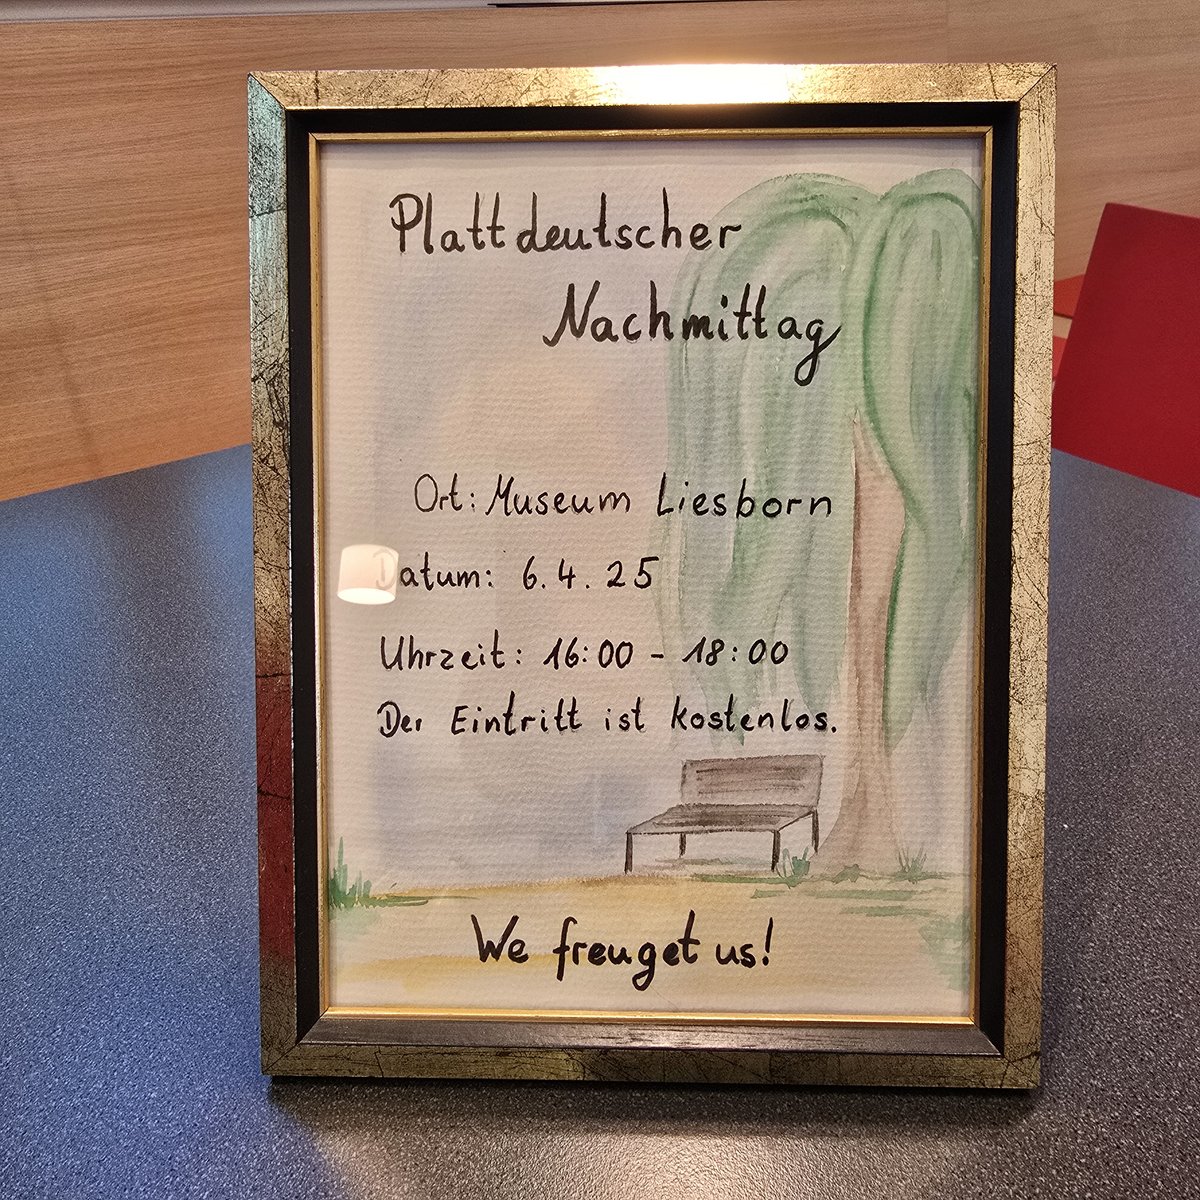 Plattdeutscher
Nachmittag
Ort: Museum Liesborn
Datum: 6.4.25
Uhrzeit: 16:00 - 18:00
Der Eintritt ist kostenlos.
We freuget us!